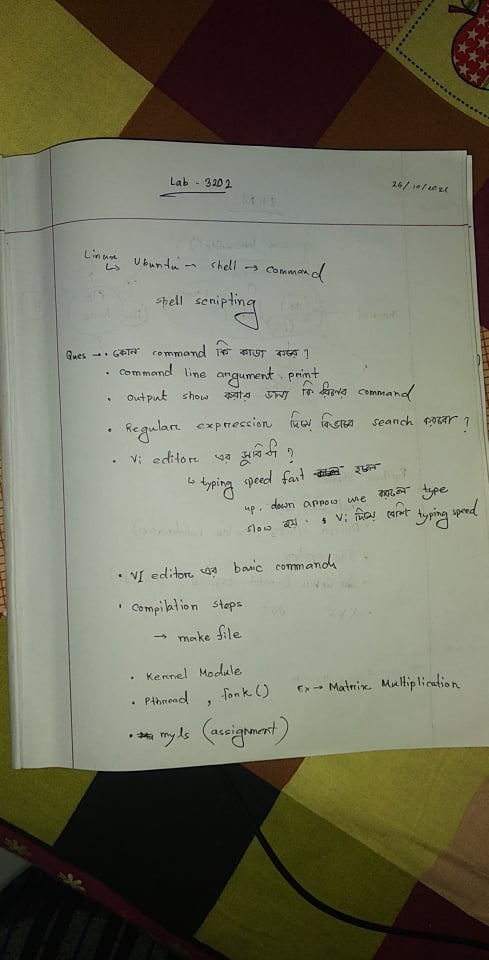 Lab - 3202
26/10/2021
Linux
↳ Ubuntu → shell → command
shell scripting
Ques → • কোন command কি কাজ করে ?
• command line argument, print
• output show করার জন্য কি ধরনের command
• Regular expression দিয়ে কিভাবে search করবো ?
• Vi editor এর সুবিধা ?
↳ typing speed fast হয়
up, down arrow use করলে type
slow হয়। Vi দিয়ে বেশি typing speed
• VI editor এর basic commands
• Compilation steps
→ make file
• Kernel Module
• Pthread, fork() Ex → Matrix Multiplication
• myls (assignment)